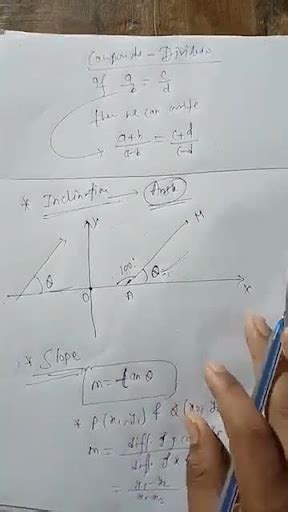 Componendo - Dividendo
If a/b = c/d
then we can write
(a+b)/(a-b) = (c+d)/(c-d)
* Inclination → Angle
y
M
θ
100°
θ
O
A
x
* Slope
m = tan θ
* P(x₁, y₁) & Q(x₂, y
m = diff. of y co / diff. of x
= y₁-y₂ / x₁-x₂